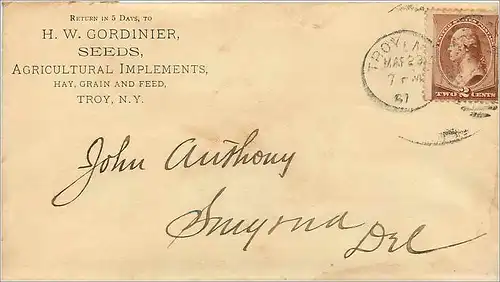 RETURN IN 5 DAYS, TO
H. W. GORDINIER,
SEEDS,
AGRICULTURAL IMPLEMENTS,
HAY, GRAIN AND FEED,
TROY, N.Y.
TROY
7 PM
87
TWO 2 CENTS
John Anthony
Smyrna
Del